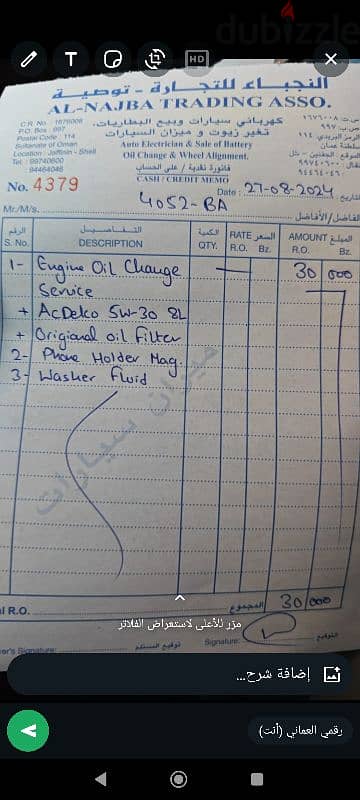 dubizzle
T
HD
النجباء للتجارة - توصية
AL-NAJBA TRADING ASSO.
C.R No. : 1676008
P.O. Box : 997
Postal Code : 114
Sultanate of Oman
Location : Jaffnin - Shell
Tel : 99740600
94464046
كهربائي سيارات وبيع البطاريات،
تغيير زيوت و ميزان السيارات
Auto Electrician & Sale of Battery
Oil Change & Wheel Alignment.
فاتورة نقدية / على الحساب
CASH / CREDIT MEMO
س.ت: ١٦٧٦٠٠٨
ص.ب: ٩٩٧
الرمز البريدي: ١١٤
سلطنة عمان
٩٩٧٤٠٦٠٠
٩٤٤٦٤٠٤٦
No. 4379
Date : 27-08-2024 التاريخ:
Mr./M/s. 4052-BA الفاضل/الأفاضل
الرقم التفاصيل الكمية RATE السعر AMOUNT المبلغ
S. No. DESCRIPTION QTY. R.O. Bz. R.O. Bz.
1- Engine Oil Change 30 000
Service
+ AcDelco 5W-30 8L
+ Origional oil Filter
2- Phone Holder Mag.
3- Washer Fluid
ميزان سيارات
al R.O. المجموع 30 000
مرّر للأعلى لاستعراض الفلاتر
ver's Signature: توقيع المستلم Signature: التوقيع
إضافة شرح...
رقمي العماني (أنت)